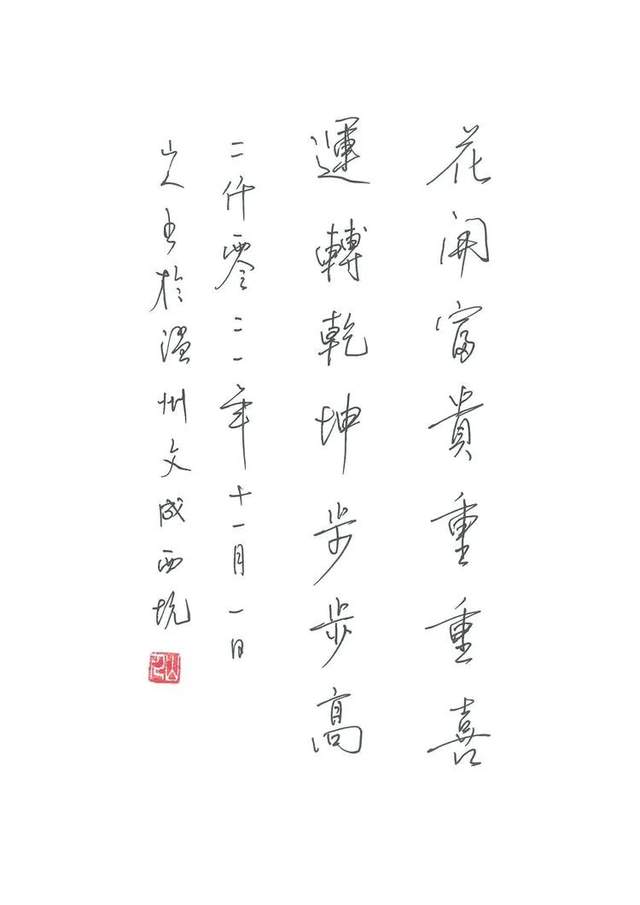 花開富貴重重喜
運轉乾坤步步高
二仟零二一年十一月一日
山人書於溫州文成西坑